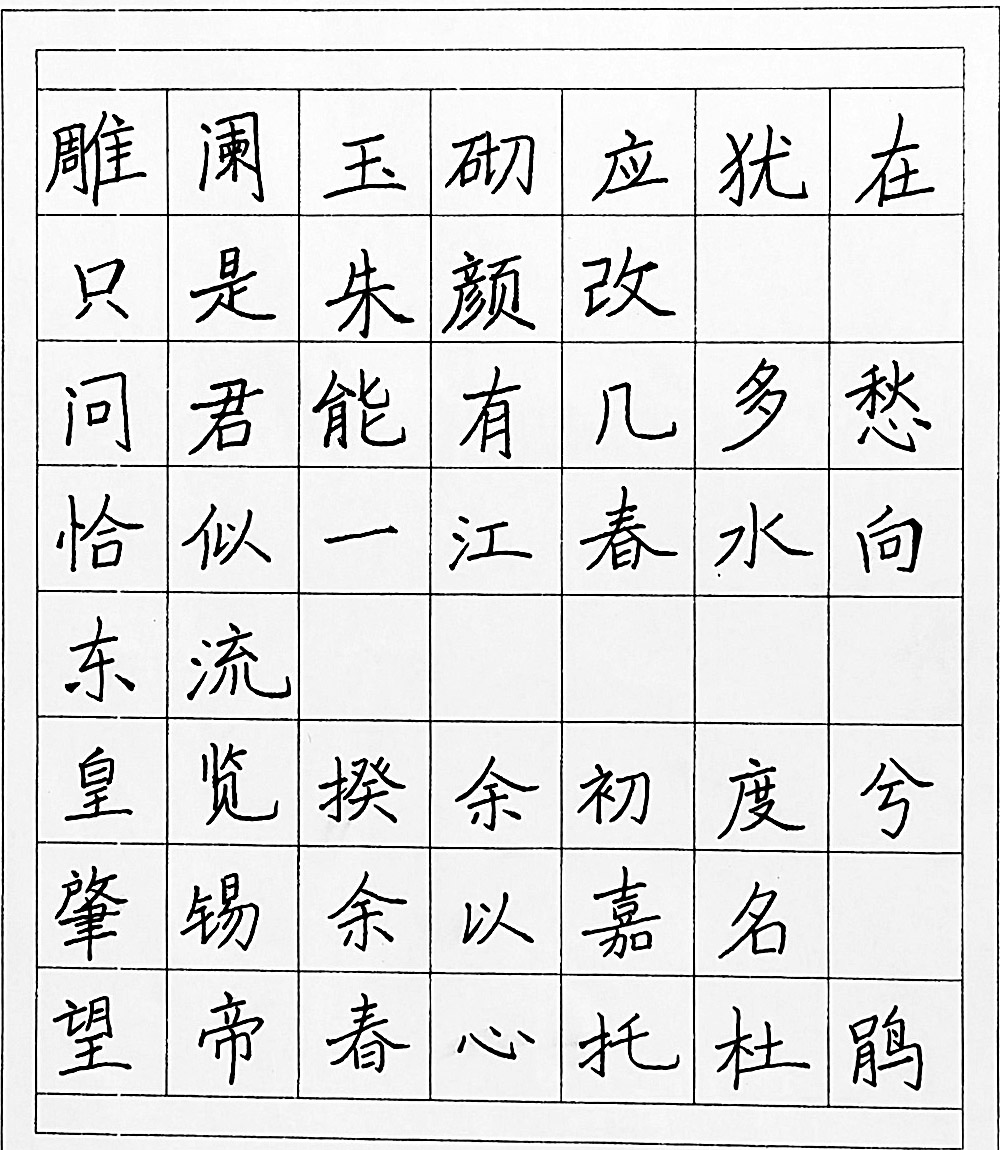 雕阑玉砌应犹在
只是朱颜改
问君能有几多愁
恰似一江春水向
东流
皇览揆余初度兮
肇锡余以嘉名
望帝春心托杜鹃